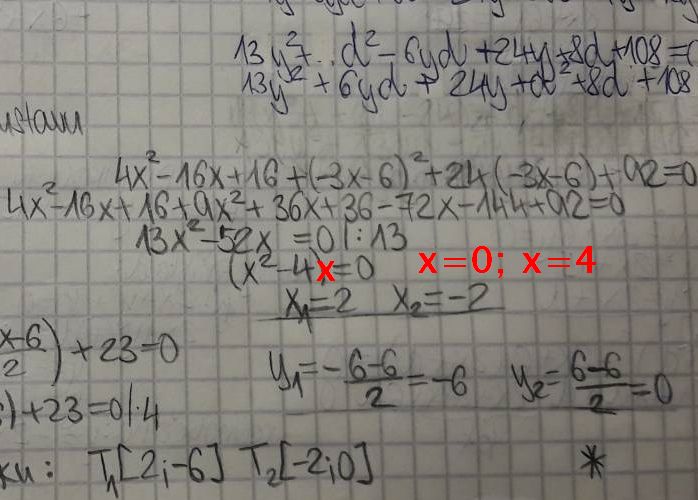 13y²+..d²-6yd+24y+8d+108=0
13y²+6yd+24y+d²+8d+108
4x²-16x+16+(-3x-6)²+24(-3x-6)+92=0
4x²-16x+16+9x²+36x+36-72x-144+92=0
13x²-52x=0/:13
(x²-4)x=0 x=0; x=4
x₁=2 x₂=-2
x-6)+23=0
2
y₁=-6-6/2=-6 y₂=6-6/2=0
)+23=0/·4
T₁[2;-6] T₂[-2;0] *